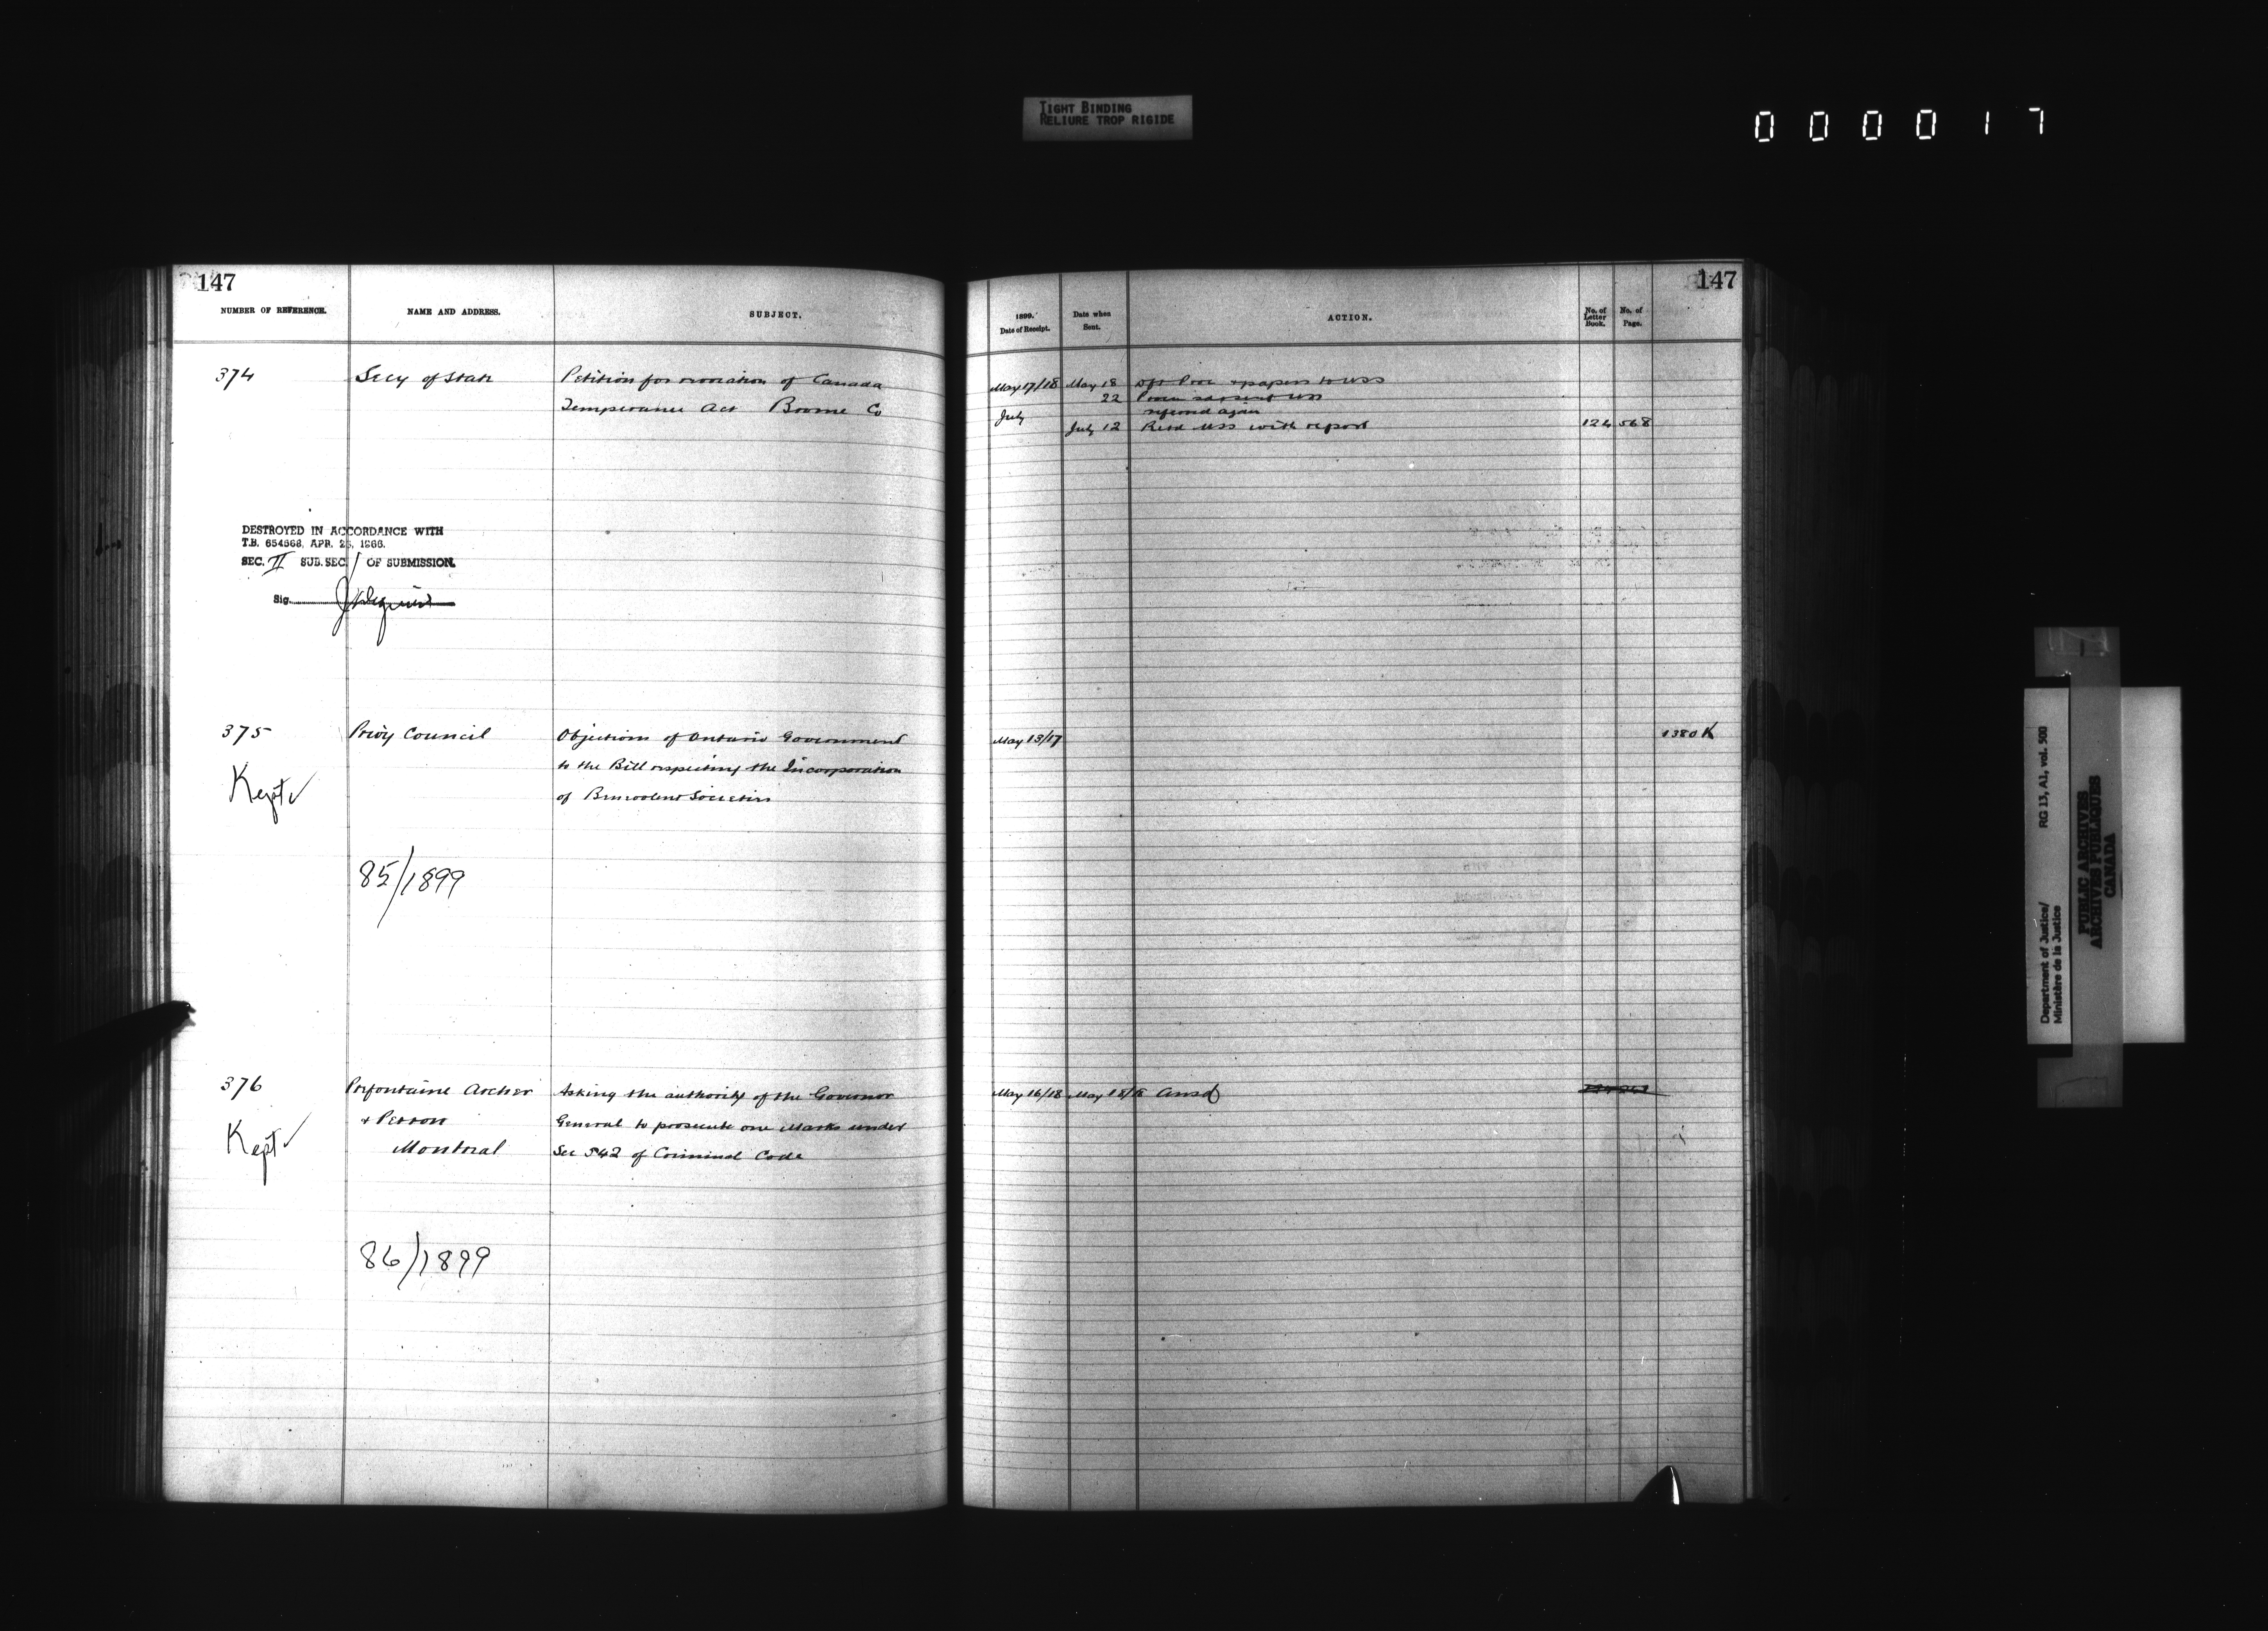 TIGHT BINDING
RELIURE TROP RIGIDE
000017
147
NUMBER OF REFERENCE.
NAME AND ADDRESS.
SUBJECT.
374
Secy of State
Petition for revocation of Canada
Temperance Act Brome Co
DESTROYED IN ACCORDANCE WITH
T.B. 654568, APR. 25, 1966.
SEC. II SUB. SEC. 1 OF SUBMISSION.
Sig.
375
Privy Council
Objections of Ontario Government
to the Bill respecting the Incorporation
of Benevolent Societies
Kept ✓
85/1899
376
Prefontaine Archer
+ Perron
Montreal
Asking the authority of the Governor
General to prosecute one Marks under
Sec 542 of Criminal Code
Kept ✓
86/1899
147
1899.
Date of Receipt.
Date when
Sent.
ACTION.
No. of
Letter
Book.
No. of
Page.
May 17/18 May 18 papers to USS
22
July
referred again
July 12 Retd USS with report 124 568
May 13/17 1380 K
May 16/18 May 18/18 Ansd
Department of Justice/ RG 13, A1, vol. 500
Ministère de la Justice
PUBLIC ARCHIVES
ARCHIVES PUBLIQUES
CANADA